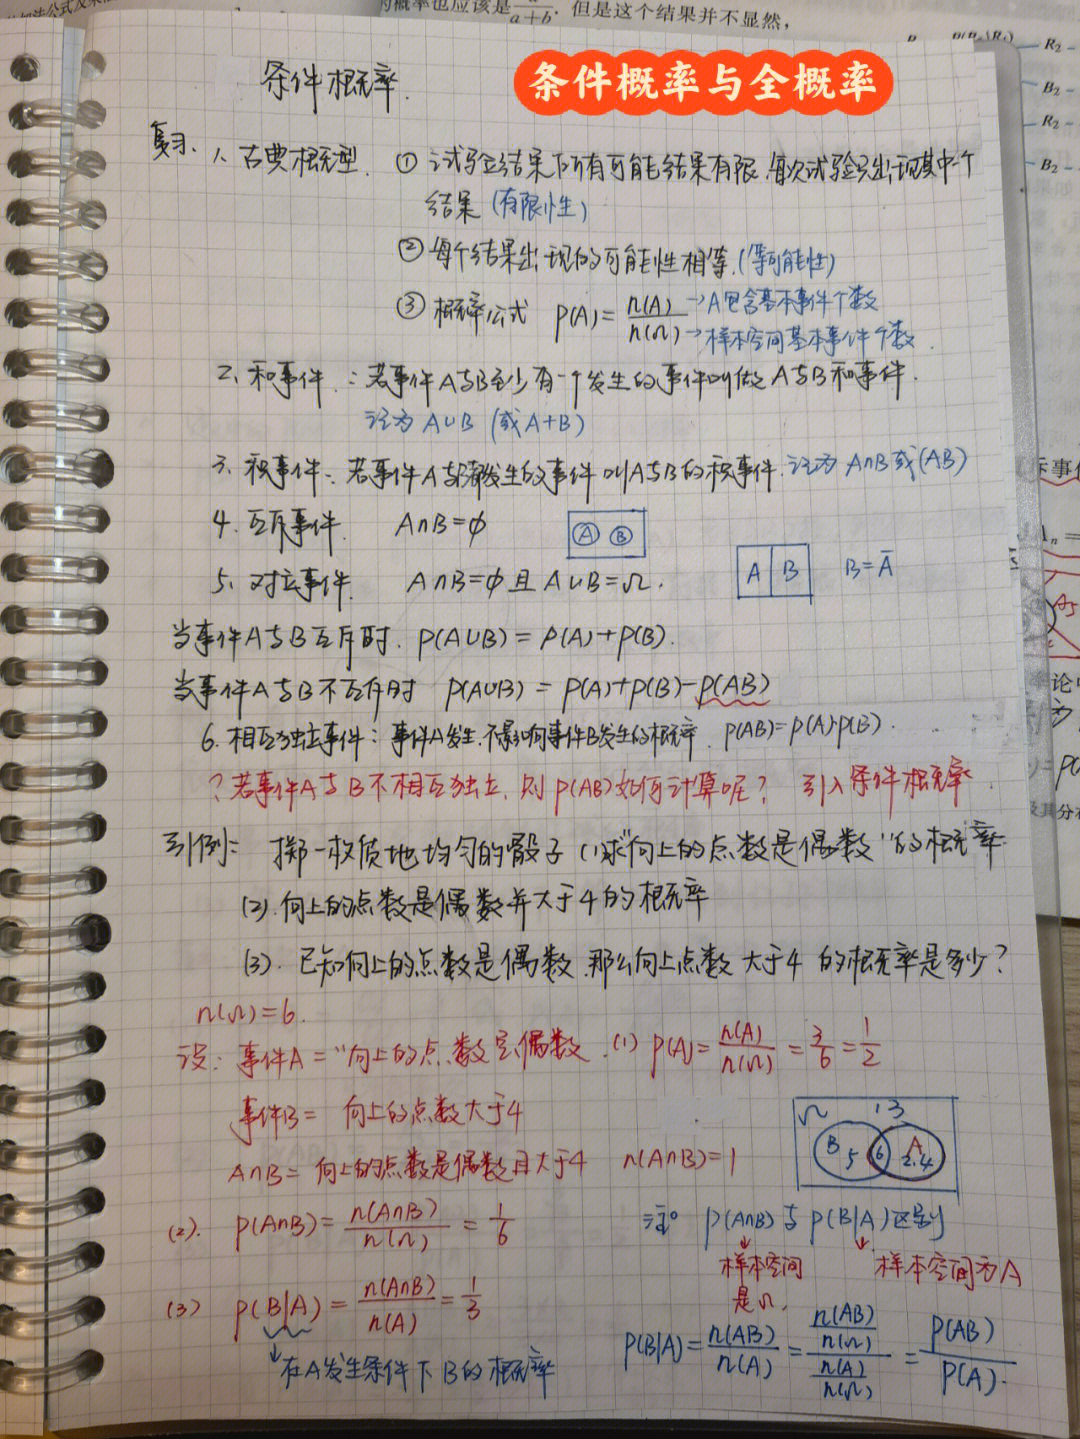 的概率也应该是 a/(a+b). 但是这个结果并不显然,
R₂
B₂
R₂
B₂
条件概率与全概率
条件概率.
复习. 1、古典概型. ① 试验结果所有可能结果有限,每次试验只出现其中一个
结果 (有限性)
② 每个结果出现的可能性相等.(等可能性)
③ 概率公式 P(A)=n(A)/n(Ω) →A包含基本事件个数
→样本空间基本事件个数.
2、和事件.:若事件A与B至少有一个发生的事件叫做A与B和事件.
记为 A∪B (或A+B)
3. 积事件:若事件A与B都发生的事件叫A与B的积事件.记为 A∩B或(AB)
4. 互斥事件. A∩B=∅ A B
5、对立事件. A∩B=∅且A∪B=Ω. A B B=Ā
当事件A与B互斥时. P(A∪B)=P(A)+P(B).
当事件A与B不互斥时 P(A∪B)=P(A)+P(B)-P(AB)
6. 相互独立事件:事件A发生.不影响事件B发生的概率. P(AB)=P(A)·P(B).
?若事件A与B不相互独立,则P(AB)如何计算呢? 引入条件概率.
引例: 掷一枚质地均匀的骰子(1)求“向上的点数是偶数”的概率.
(2).向上的点数是偶数并大于4的概率
(3). 已知向上的点数是偶数.那么向上点数大于4 的概率是多少?
n(Ω)=6.
设:事件A=“向上的点数是偶数.(1) P(A)=n(A)/n(Ω)=3/6=1/2
事件B= 向上的点数大于4
Ω 1 3
B 5 6 A 2.4
A∩B=向上的点数是偶数且大于4 n(A∩B)=1
(2). P(A∩B)=n(A∩B)/n(Ω)=1/6
注。P(A∩B)与P(B|A)区别
样本空间是Ω.
样本空间为A
(3) P(B|A)=n(A∩B)/n(A)=1/3
在A发生条件下B的概率
P(B|A)=n(AB)/n(A)=(n(AB)/n(Ω))/(n(A)/n(Ω))=P(AB)/P(A).